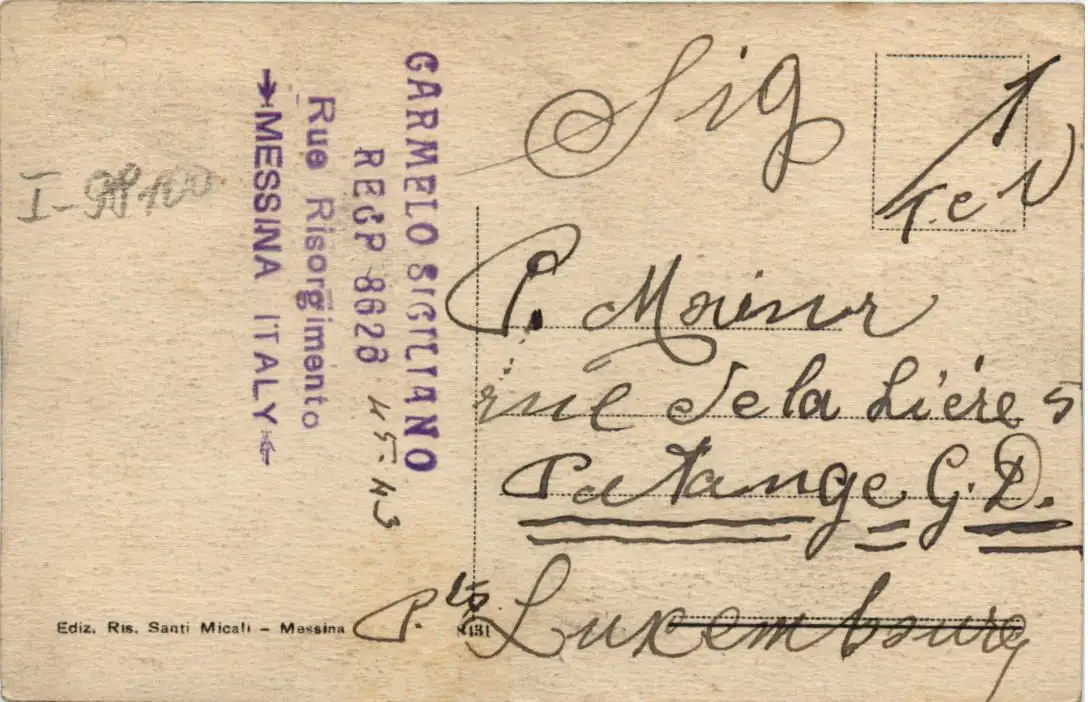 I-98100
CARMELO SIGILIANO
REGP 8628
Rue Risorgimento
MESSINA ITALY
Sig
T.C.V
P.
rue de la Liére 5
Petange G.D.
Luxembourg
Ediz. Ris. Santi Micali - Messina
8431